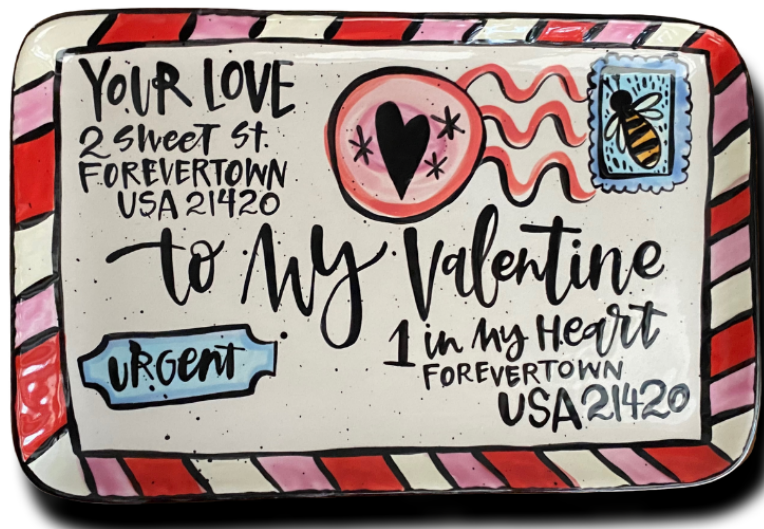 YOUR LOVE
2 Sweet St.
FOREVERTOWN
USA 21420
to My Valentine
1 in My Heart
FOREVERTOWN
USA 21420
URGENT